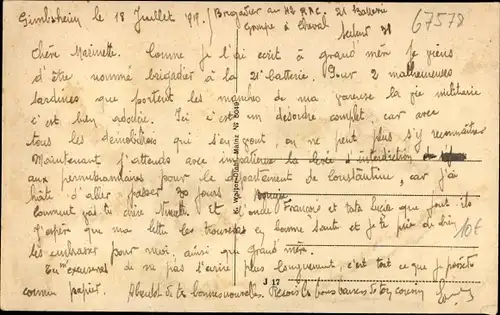 Gimbsheim le 18 Juillet 1919. Brigadier au
21 Batterie
Groupe à Cheval
Secteur 31
67578
Chère Marinette. Comme je l'ai écrit à grand'mère je viens
d'être nommé brigadier à la 21e batterie. Pour 2 malheureuses
sardines que portent les manches de ma vareuse la vie militaire
c'est bien adoucie. Ici c'est un désordre complet car avec
tous les démobilisés qui s'en vont, on ne peut plus s'y reconnaître
Maintenant j'attends avec impatience la levée d'interdiction
aux permissionnaires pour le département de Constantine, car j'ai
hâte d'aller passer 30 jours
Comment vas tu chère Ninette et l'oncle François et tata Lucie que font ils
J'espère que ma lettre les trouvera en bonne santé et je te prie de bien
les embrasser pour moi, ainsi que grand'mère.
Tu m'excuseras de ne pas t'écrire plus longuement, c'est tout ce que je possède
comme papier. Bientôt de tes bonnes nouvelles. Reçois les bons baisers de ton cousin
10€
Mainz No 8098
J 17